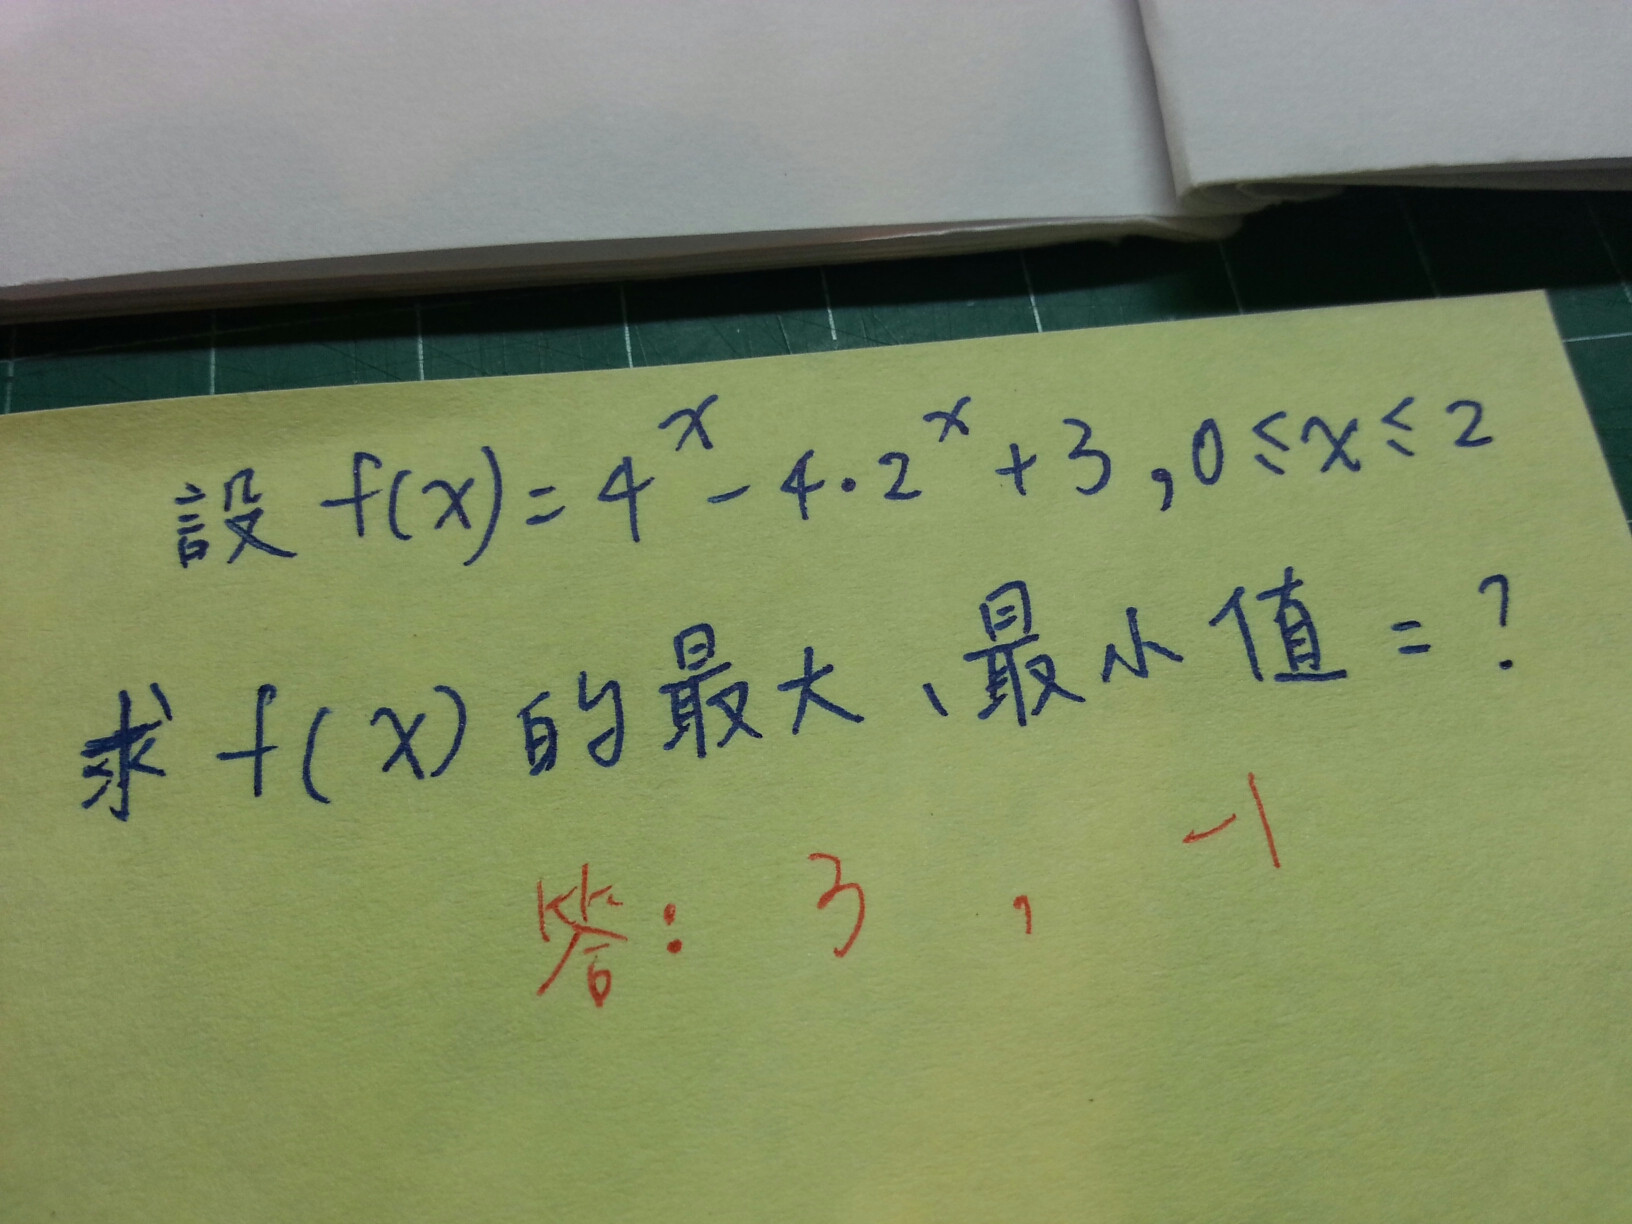 設 f(x)=4^x-4·2^x+3,0≤x≤2
求f(x)的最大、最小值=?
答: 3 , -1